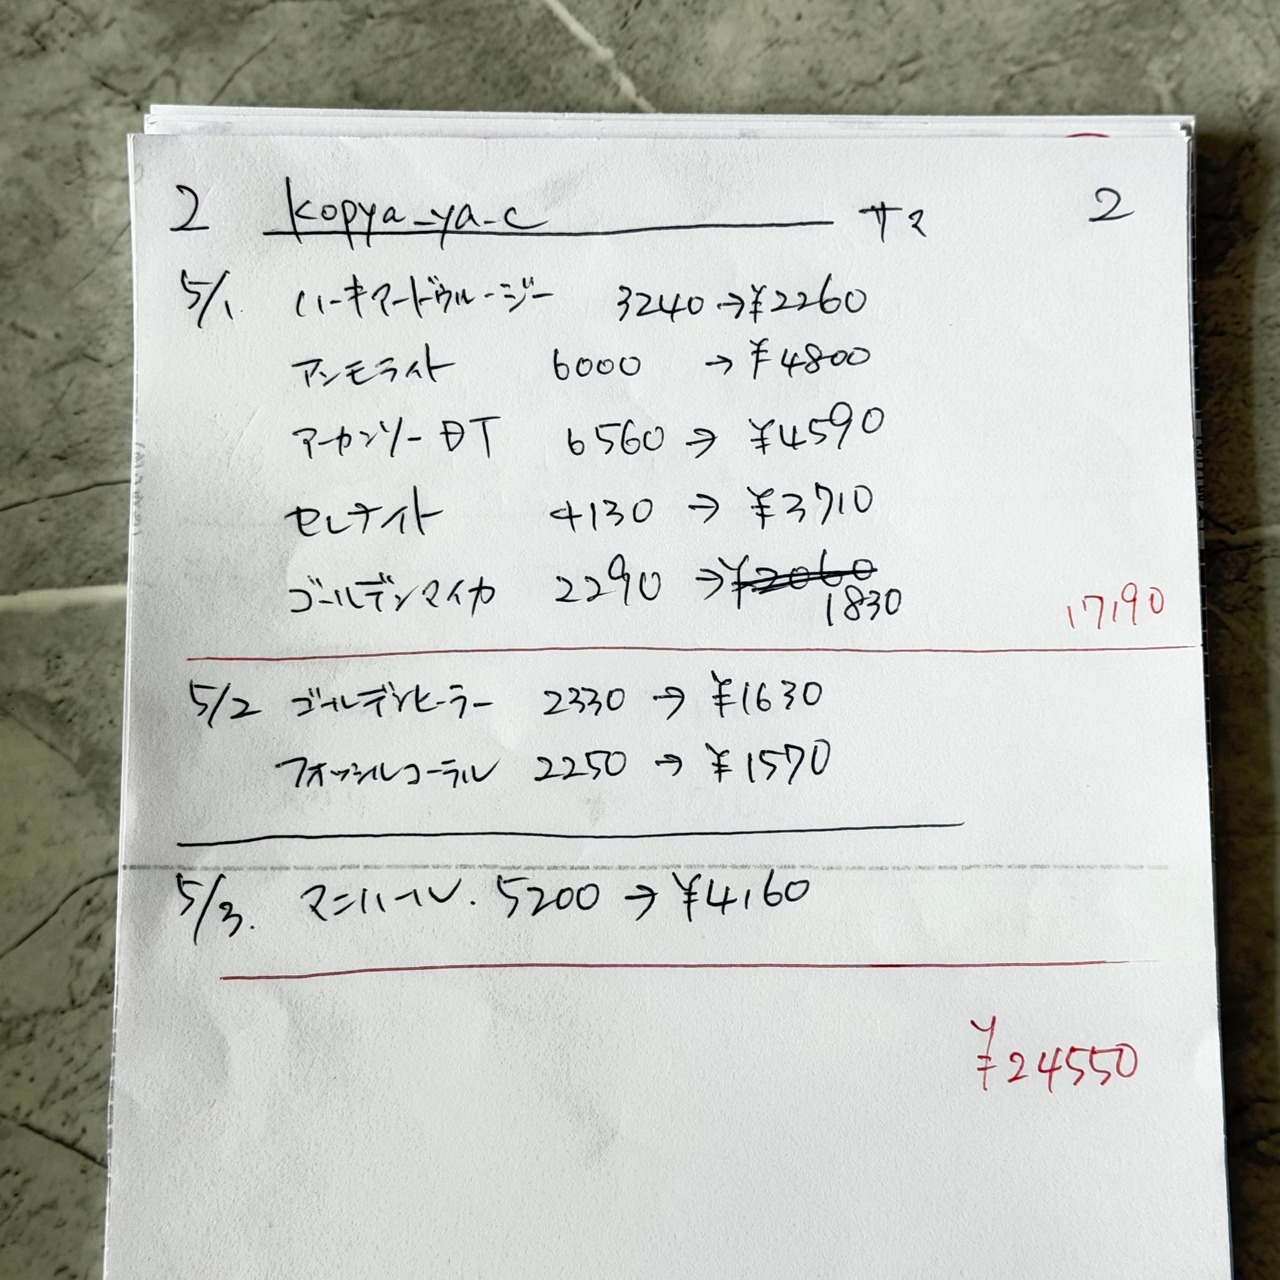 2 kopya_ya_c サマ 2
5/1. ハーキマードゥルージー 3240→¥2260
アンモライト 6000 →¥4800
アーカンソーDT 6560→ ¥4590
セレナイト 4130 → ¥3710
ゴールデンマイカ 2290 →¥2060
1830
17190
5/2 ゴールデンヒーラー 2330 → ¥1630
フォッシルコーラル 2250 → ¥1570
5/3. マニハール. 5200 → ¥4160
¥24550